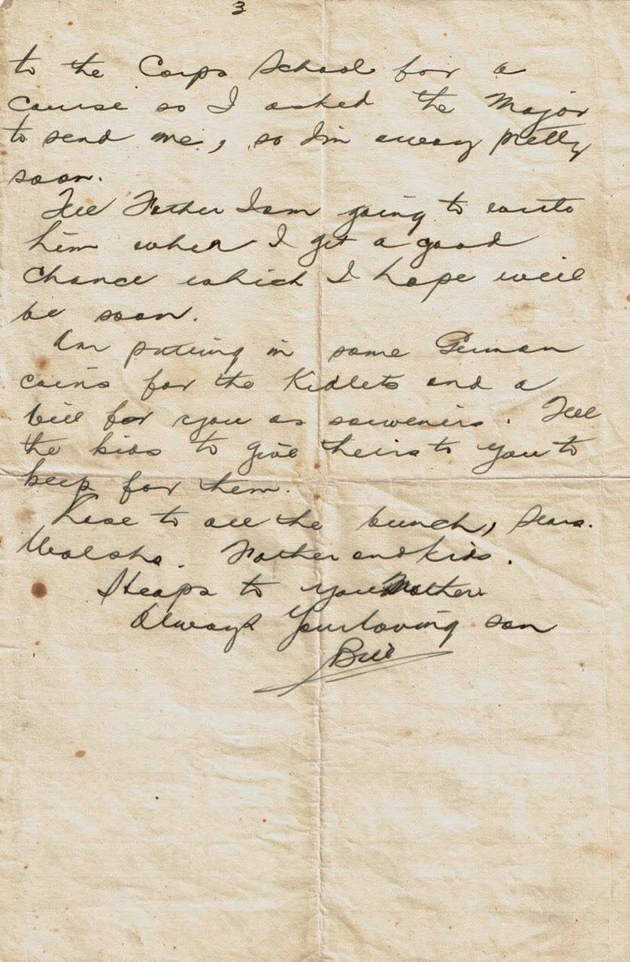 3
to the Corps School for a
course so I asked the Major
to send me, so I'm away pretty
soon.
Tell Father I am going to write
him when I get a good
chance which I hope will
be soon.
Am putting in some German
coins for the Kidlets and a
bill for you as souvenirs. Tell
the kids to give theirs to you to
keep for them.
Love to all the bunch,
Father and kids.
Heaps to you Mother
Always Your loving son
Bill